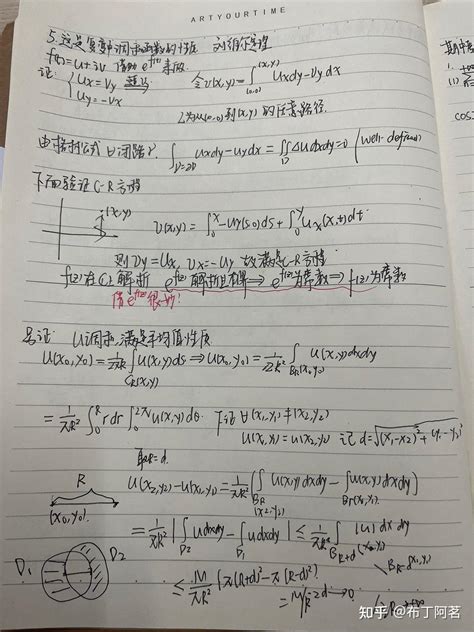 ARTYOURTIME
5. 这是复变中调和函数的 刘维尔定理
f(z)=u+iv 借助 e^{f(z)} 来做
证: { Ux=Vy Uy=-Vx 令 v(x,y)=∫_{(0,0)}^{(x,y)} Uxdy-Uydx
L为从(0,0)到(x,y)的任意路径
由格林公式 ∀闭路 ∫_{D=∂D} Uxdy-Uydx=∬_D Δudxdy=0 (well-defined)
下面验证C-R方程
(x,y)
v(x,y)=∫_0^x -Uy(s,0)ds+∫_0^y Ux(x,t)dt
则 Vy=Ux, Vx=-Uy 故满足C-R方程
f(z)在C上解析 e^{f(z)}解析且有界⇒e^{f(z)}为常数⇒f(z)为常数
借e^{f(z)}很妙!
另证: U调和,满足平均值性质
U(x0,y0)=1/2πR ∫_{CR(x,y)} U(x,y)ds⇒U(x0,y0)=1/πR² ∫_{BR(x0,y0)} U(x,y)dxdy
=1/πR² ∫_0^R rdr∫_0^{2π} U(x,y)dθ 下证 ∀(x1,y1)≠(x2,y2)
U(x1,y1)=U(x2,y2) 记 d=√((x1-x2)²+(y1-y2)²)
取R>d
R
(x0,y0)
U(x2,y2)-U(x1,y1)=1/πR² [∫_{BR(x2,y2)} U(x,y)dxdy-∫_{BR(x1,y1)} U(x,y)dxdy]
D1 D2
=1/πR² |∫_{D2} Udxdy-∫_{D1} Udxdy| ≤1/πR² ∫_{BR+d(x1,y1)\BR-d(x1,y1)} |U|dxdy
≤M/πR² [π(R+d)²-π(R-d)²]
知乎 @布丁阿茗